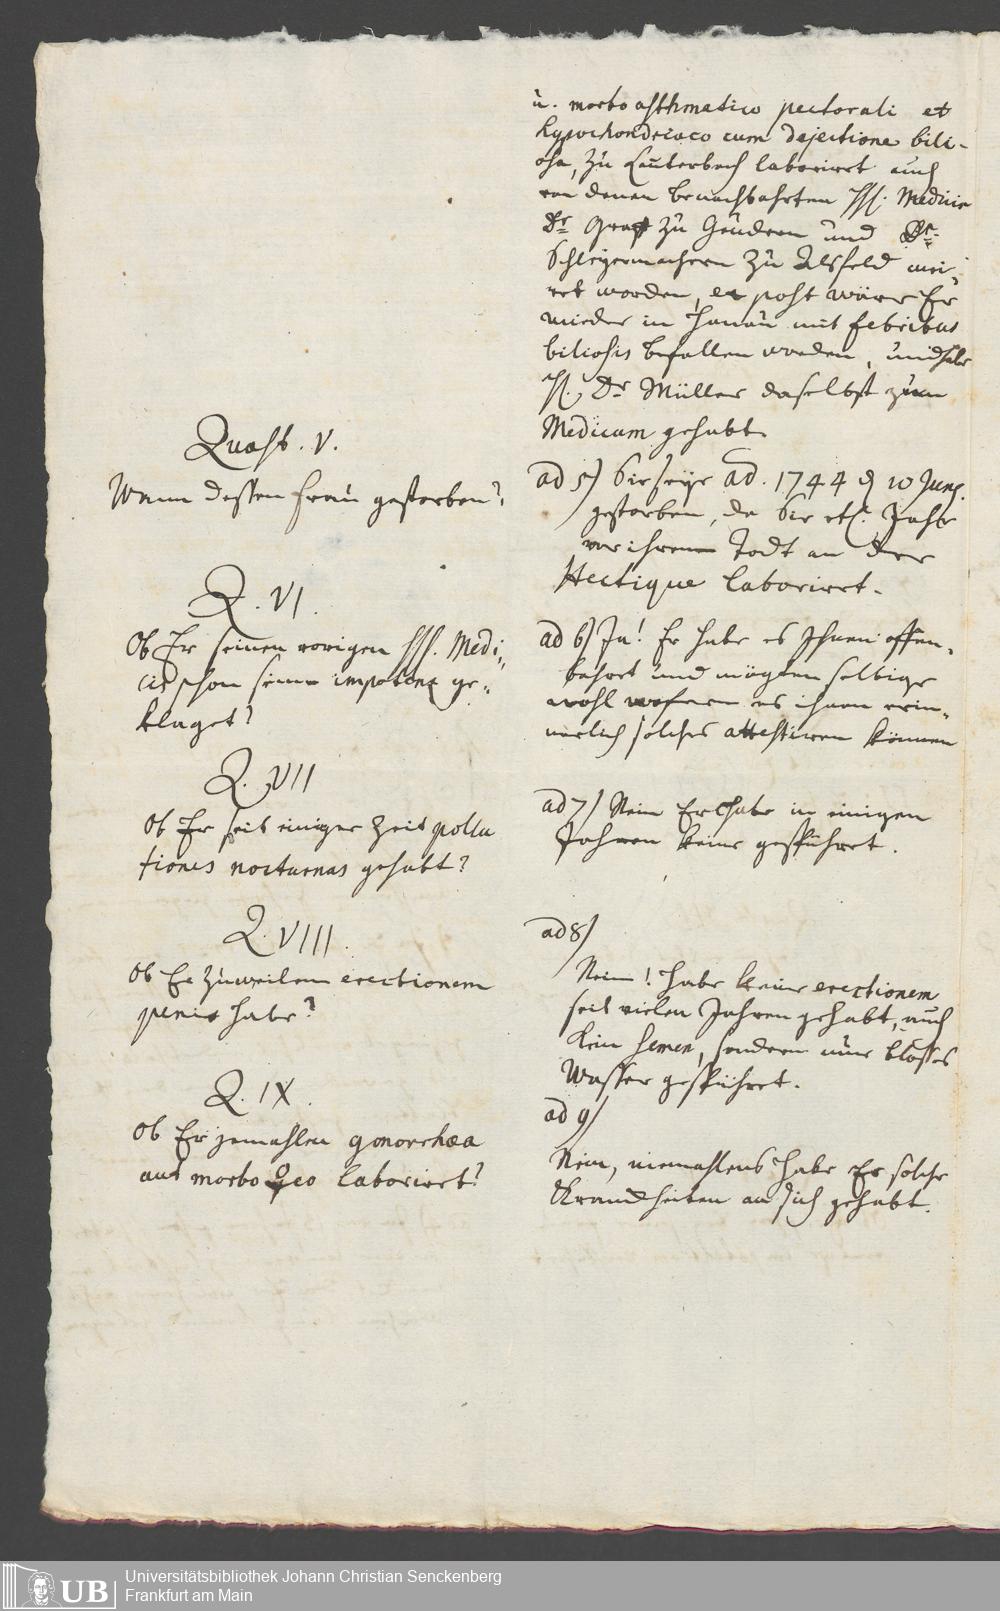 u. morbo asthmatico pectorali et
hypochondriaco cum dejectione bili-
osa, zu Lauterbach laborirt auch
von denen benachbahrten HH. Medicis
Dr. Graff zu Geudern und Dr.
Schleyermachern zu Alsfeld
worden, et post wäre Er
wieder in Hanau mit febribus
biliosis befallen worden, und habe
H. Dr Müller daselbst zum
Medicum gehabt.
Quaest. V.
Wann dessen Frau gestorben?
ad 5) Sie seye ad. 1744 d 10 Junij
gestorben, da Sie etl. Jahr
vor ihrem Todt an der
Hectique laborirt.
Q. VI.
Ob Er seinen vorigen HH. Medi-
cis schon seine impotenz ge-
klaget?
ad 6) Ja! Er habe es Ihnen offen-
bahret und mögten selbige
wohl wofern es ihnen erin-
nerlich solches attestiren können
Q. VII
Ob Er seit einiger Zeit pollu
tiones nocturnas gehabt?
ad 7) Nein Er habe in einigen
Jahren keine gespühret.
Q. VIII.
Ob Er zuweilen erectionem
penis habe?
ad 8)
Nein! habe keine erectionem
seit vielen Jahren gehabt, auch
kein semen, sondern nur blosses
Wasser gespühret.
Q. IX.
Ob Er jemahlen gonorrhaea
aut morbo ♀eo laborirt?
ad 9)
Nein, niemahlens habe Er solche
Kranckheiten an sich gehabt.
UB
Universitätsbibliothek Johann Christian Senckenberg
Frankfurt am Main